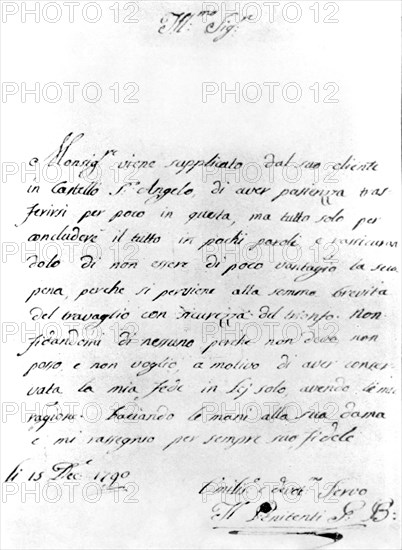 Ill:mo Sigre
Monsigre viene supplicato dal suo cliente
in Castello St Angelo, di aver pazienza tras
ferirsi per poco in questa, ma tutto solo per
concludere il tutto in pochi paroli e rassicuran
dolo di non essere di poco vantagio la sua
pena, perche si perviene alla somma brevità
del travaglio con sicurezza del trionfo. Non
fidandomi di nessuno perche non devo, non
posso, e non voglio, a motivo di aver conser
vata la mia fede in Lej solo, avendo le mie
ragioni. Baciando le mani alla sua dama
e mi rassegnio per sempre suo fidele
li 15 Dece 1790
Servo
Il Penitenti B: